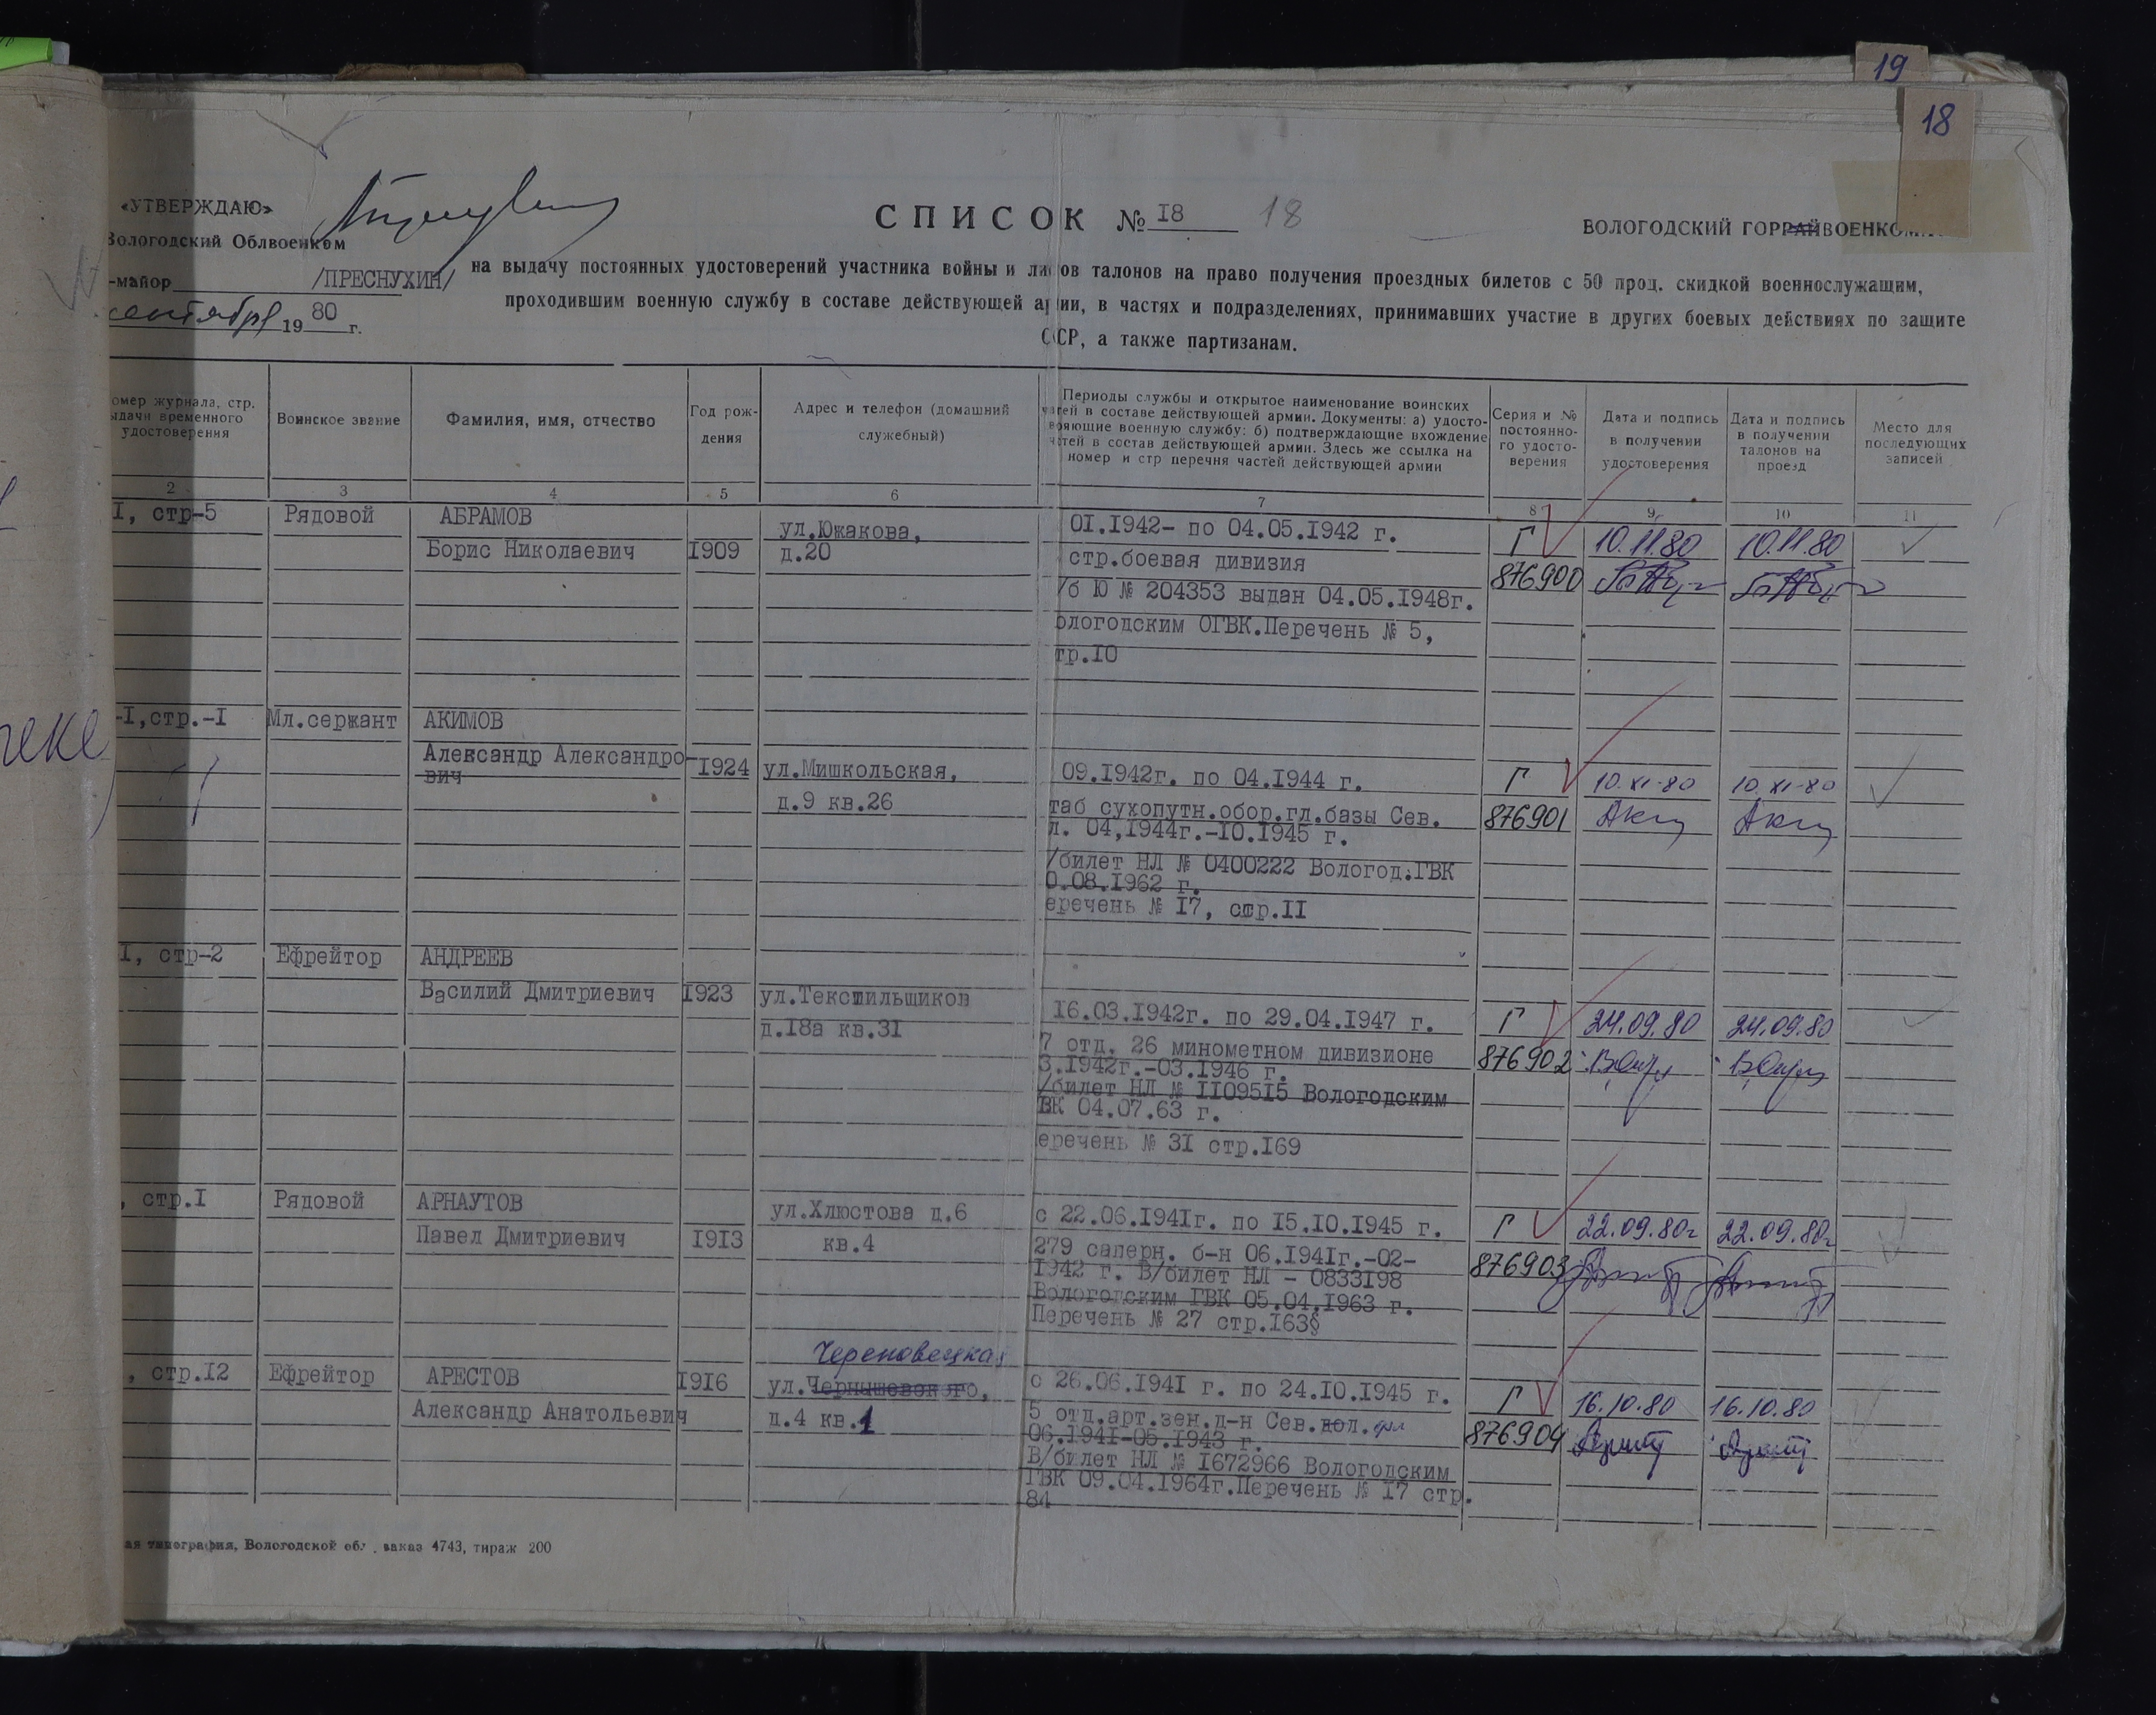 19
18
«УТВЕРЖДАЮ»
Вологодский Облвоенком
-майор /ПРЕСНУХИН/
сентября 1980 г.
СПИСОК № I8 18
ВОЛОГОДСКИЙ ГОРРАЙВОЕНКОМ
на выдачу постоянных удостоверений участника войны и листов талонов на право получения проездных билетов с 50 проц. скидкой военнослужащим,
проходившим военную службу в составе действующей армии, в частях и подразделениях, принимавших участие в других боевых действиях по защите
СССР, а также партизанам.
омер журнала, стр.
ыдачи временного
удостоверения
Воинское звание
Фамилия, имя, отчество
Год рож-
дения
Адрес и телефон (домашний
служебный)
Периоды службы и открытое наименование воинских
частей в составе действующей армии. Документы: а) удосто-
веряющие военную службу: б) подтверждающие вхождение
частей в состав действующей армии. Здесь же ссылка на
номер и стр перечня частей действующей армии
Серия и №
постоянно-
го удосто-
верения
Дата и подпись
в получении
удостоверения
Дата и подпись
в получении
талонов на
проезд
Место для
последующих
записей
2 3 4 5 6 7 8 9 10 11
I, стр-5 Рядовой АБРАМОВ
Борис Николаевич I909
ул.Южакова,
д.20
0I.I942- по 04.05.I942 г.
стр.боевая дивизия
/б Ю № 204353 выдан 04.05.I948г.
ологодским ОГВК.Перечень № 5,
тр.I0
Г
876900
10.11.80
10.11.80
-I,стр.-I Мл.сержант АКИМОВ
Александр Александро-
вич
I924
ул.Мишкольская,
д.9 кв.26
09.I942г. по 04.I944 г.
таб сухопутн.обор.гл.базы Сев.
л. 04,I944г.-I0.I945 г.
/билет НЛ № 0400222 Вологод.ГВК
0.08.I962 г.
еречень № I7, стр.II
Г
876901
10.XI-80
10.XI-80
I, стр-2 Ефрейтор АНДРЕЕВ
Василий Дмитриевич I923
ул.Текстильщиков
д.I8а кв.3I
I6.03.I942г. по 29.04.I947 г.
7 отд. 26 минометном дивизионе
3.I942г.-03.I946 г.
/билет НЛ № II095I5 Вологодским
ВК 04.07.63 г.
еречень № 3I стр.I69
Г
876902
24.09.80
24.09.80
, стр.I Рядовой АРНАУТОВ
Павел Дмитриевич I9I3
ул.Хлюстова д.6
кв.4
с 22.06.I94Iг. по I5.I0.I945 г.
279 саперн. б-н 06.I94Iг.-02-
I942 г. В/билет НЛ - 0833I98
Вологодским ГВК 05.04.I963 г.
Перечень № 27 стр.I63§
Г
876903
22.09.80г
22.09.80г
, стр.I2 Ефрейтор АРЕСТОВ
Александр Анатольевич
I9I6
Череповецкая
ул.Чернышевского,
д.4 кв.1
с 26.06.I94I г. по 24.I0.I945 г.
5 отд.арт.зен.д-н Сев.
06.I94I-05.I943 г.
В/билет НЛ № I672966 Вологодским
ГВК 09.04.I964г.Перечень № I7 стр.
84
Г
876904
16.10.80
16.10.80
ая типография, Вологодской обл., заказ 4743, тираж 200